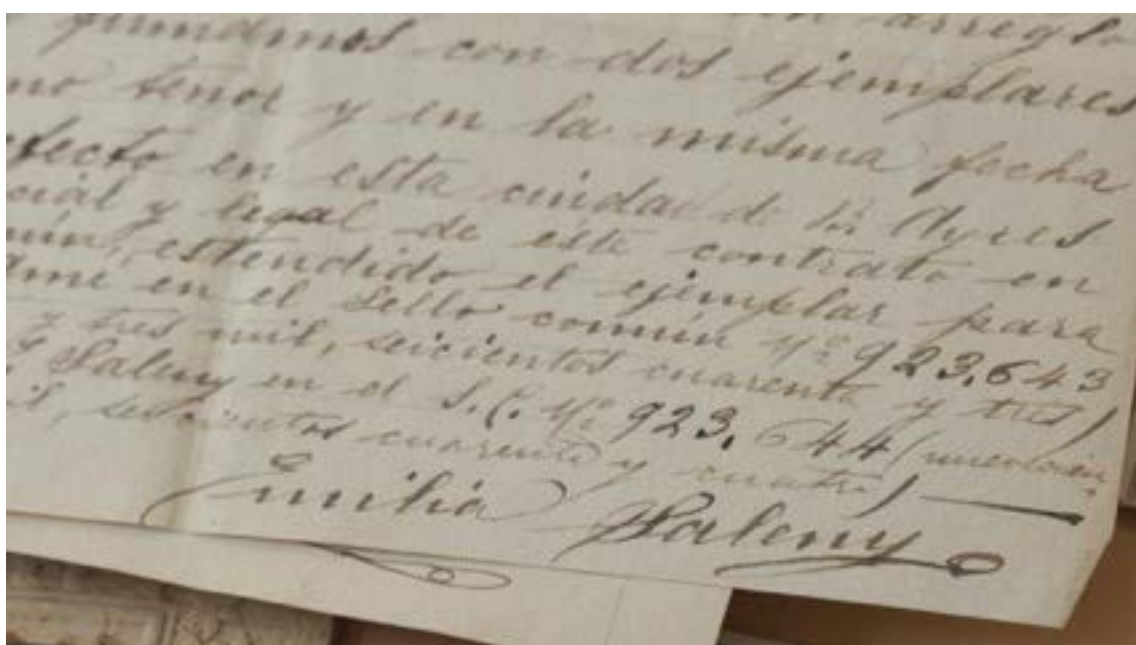 un arreglo
fundimos con dos ejemplares
mo tenor y en la misma fecha
efecto en esta ciudad de Bs Ayres
cial y legal de este contrato en
mún, estendido el ejemplar para
ame en el sello común Nº 923,643
y tres mil, seicientos cuarenta y tres)
E Saleny en el S.C. Nº 923,644 (
il, seicientos cuarenta y cuatro)
Emilia Saleny